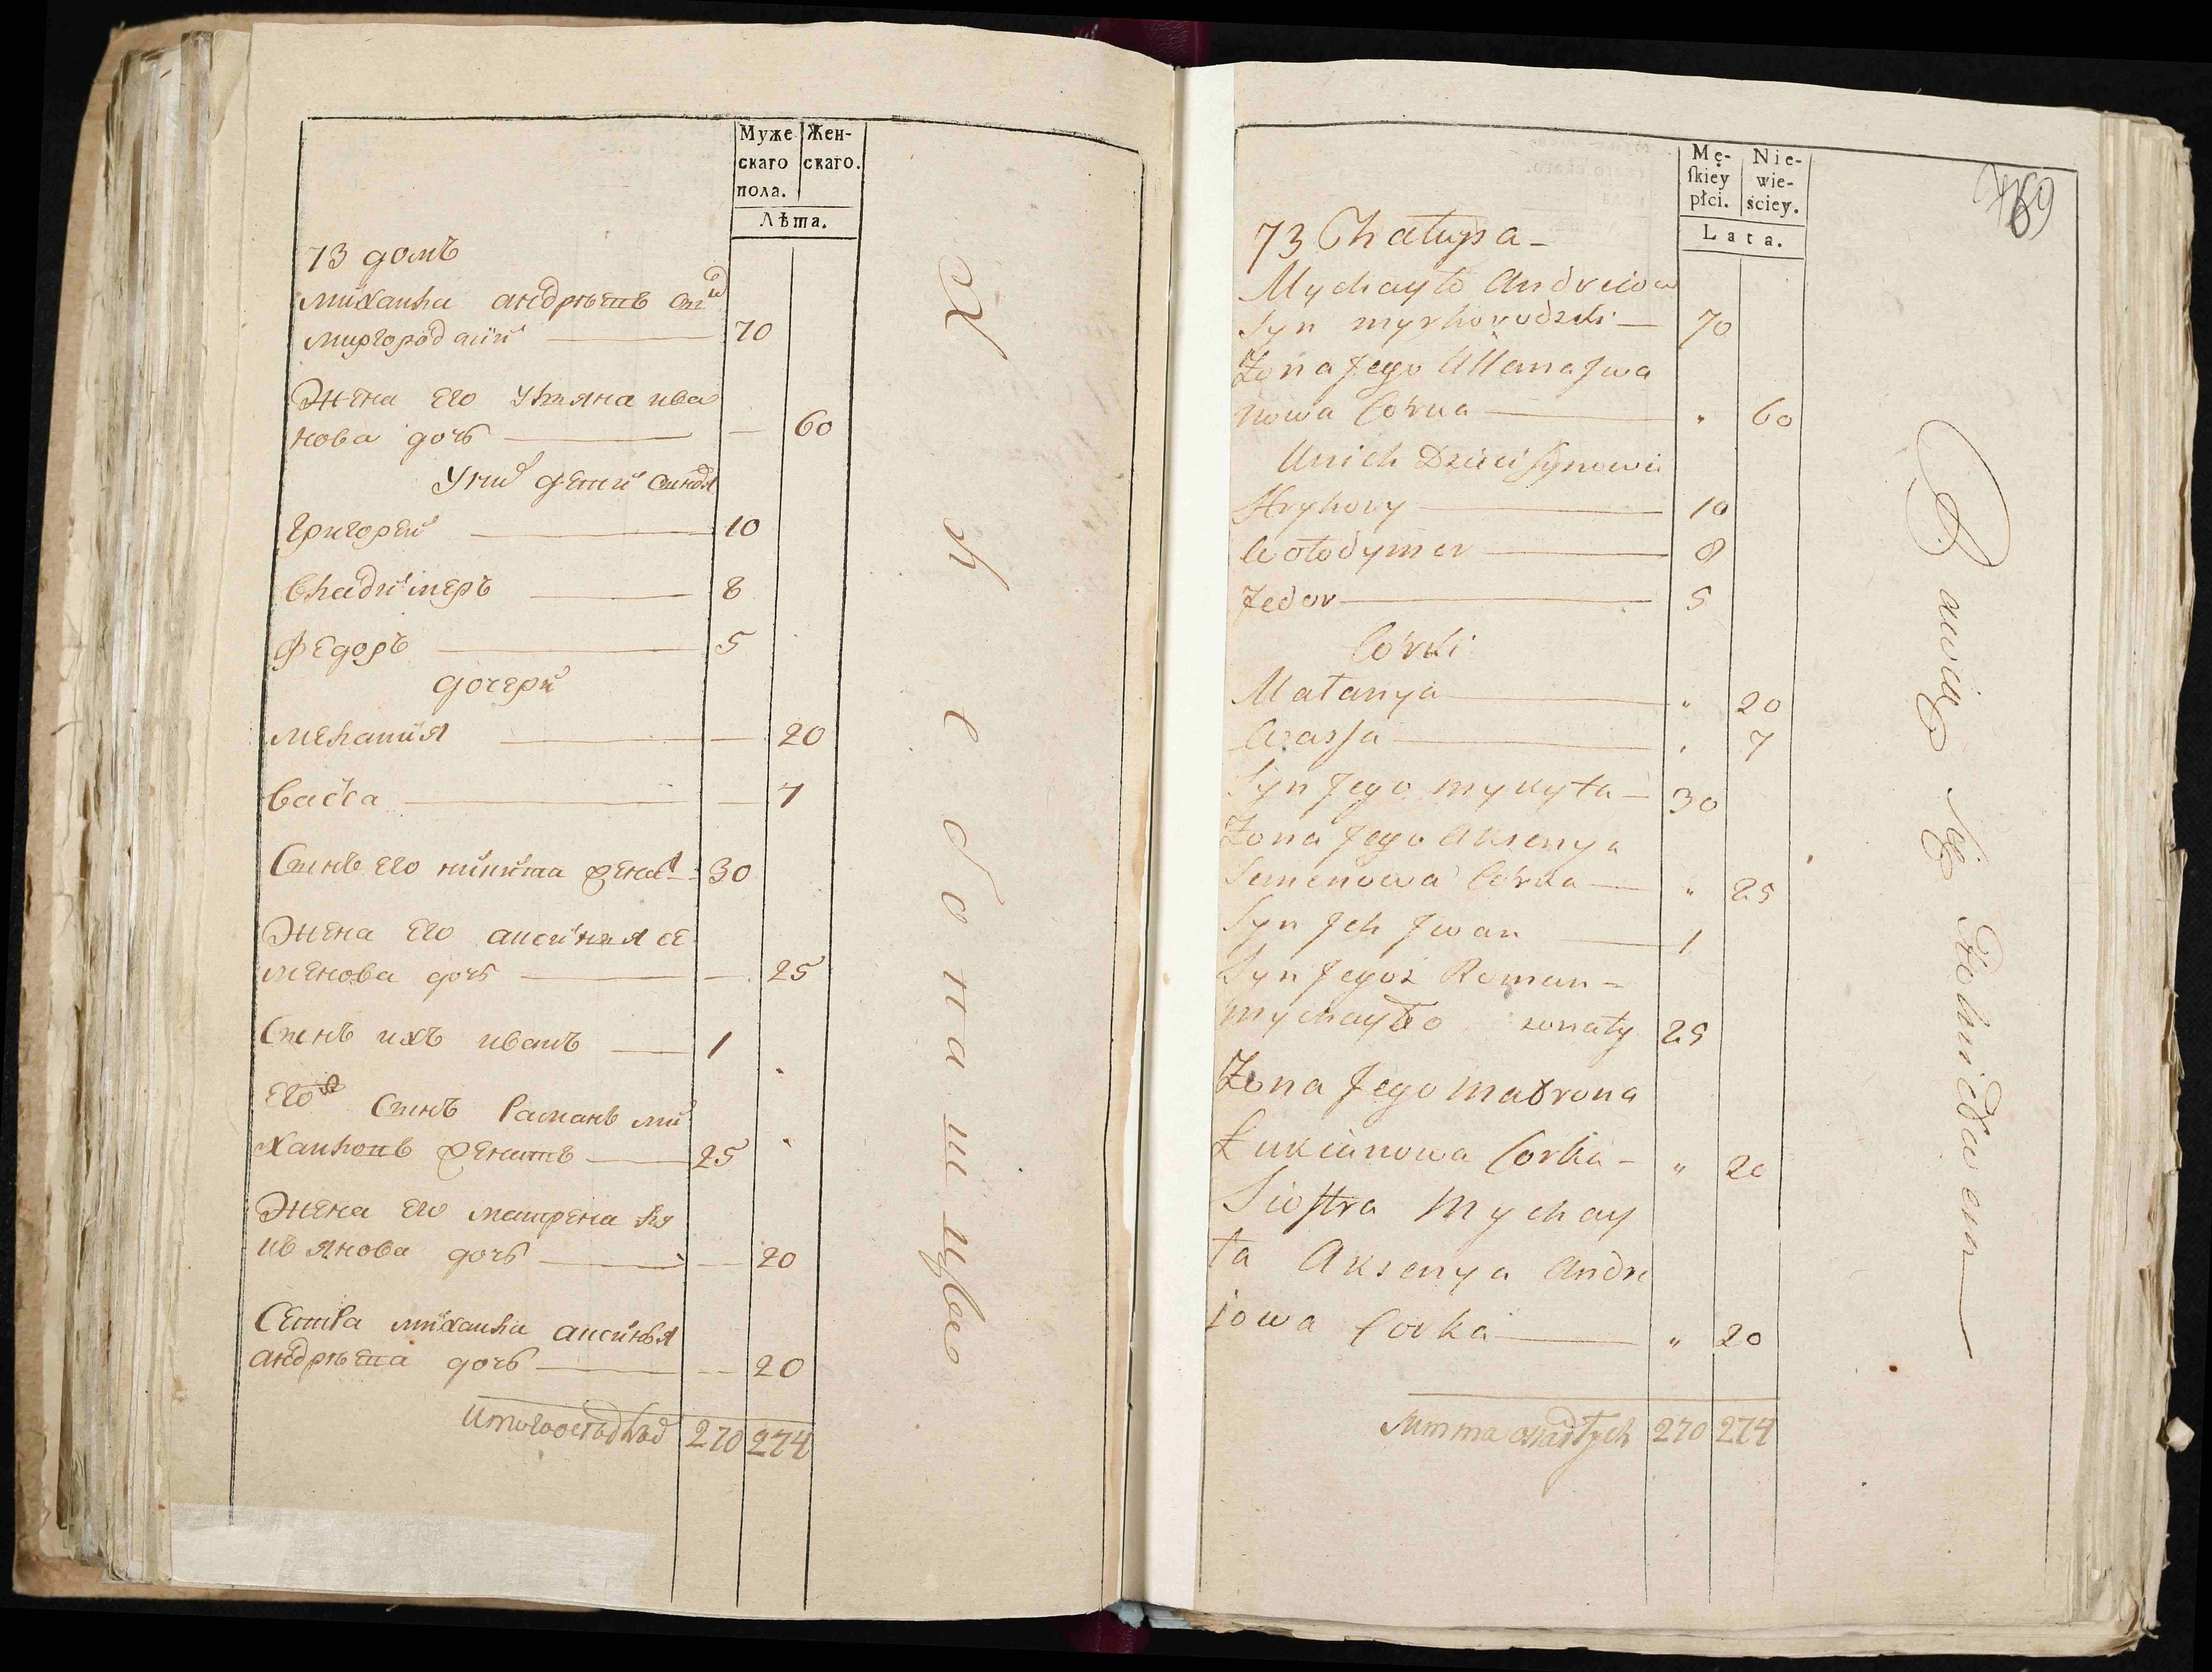 Муже
скаго
пола.
Жен-
скаго.
Лѣта.
73 домъ
михаила андрѣевъ сиⷩ
миргородскій 70
Жена его ульяна ива
нова дочь — 60
У них дети синовя
Григорей 10
Владимеръ 8
Федоръ 5
дочери
мелания — 20
Васса — 7
Синъ его никита женат 30
Жена его аксиния се
менова дочь — 25
Синъ ихъ иванъ 1
Его ж Синъ Раманъ ми
хаиловъ женатъ 25
Жена его матрена лу
кьянова дочь — 20
Сестра михаила аксинья
андрѣева дочь — 20
Итого оседлаⷯ 270 274
Mę-
ſkiey
płci.
Nie-
wie-
ściey.
Lata.
69
73 Chałupa
Mychayło Andreiow
Syn myrhorodzki 70
Żona Jego Ullana Jwa
nowa Córka " 60
U nich Dzieci Synowie
Hryhory 10
Wołodymer 8
Fedor 5
Córki
Małanya " 20
Wassa " 7
Syn Jego mykyta 30
Żona Jego Aksenya
Semenowa Córka " 25
Syn Jch Jwan 1
Syn Jegoż Roman
mychayło żonaty 25
Żona Jego Matrona
Łukianowa Corka " 20
Siostra Mychay
ła Aksenya Andre
jowa Corka " 20
Summa osiadłych 270 274